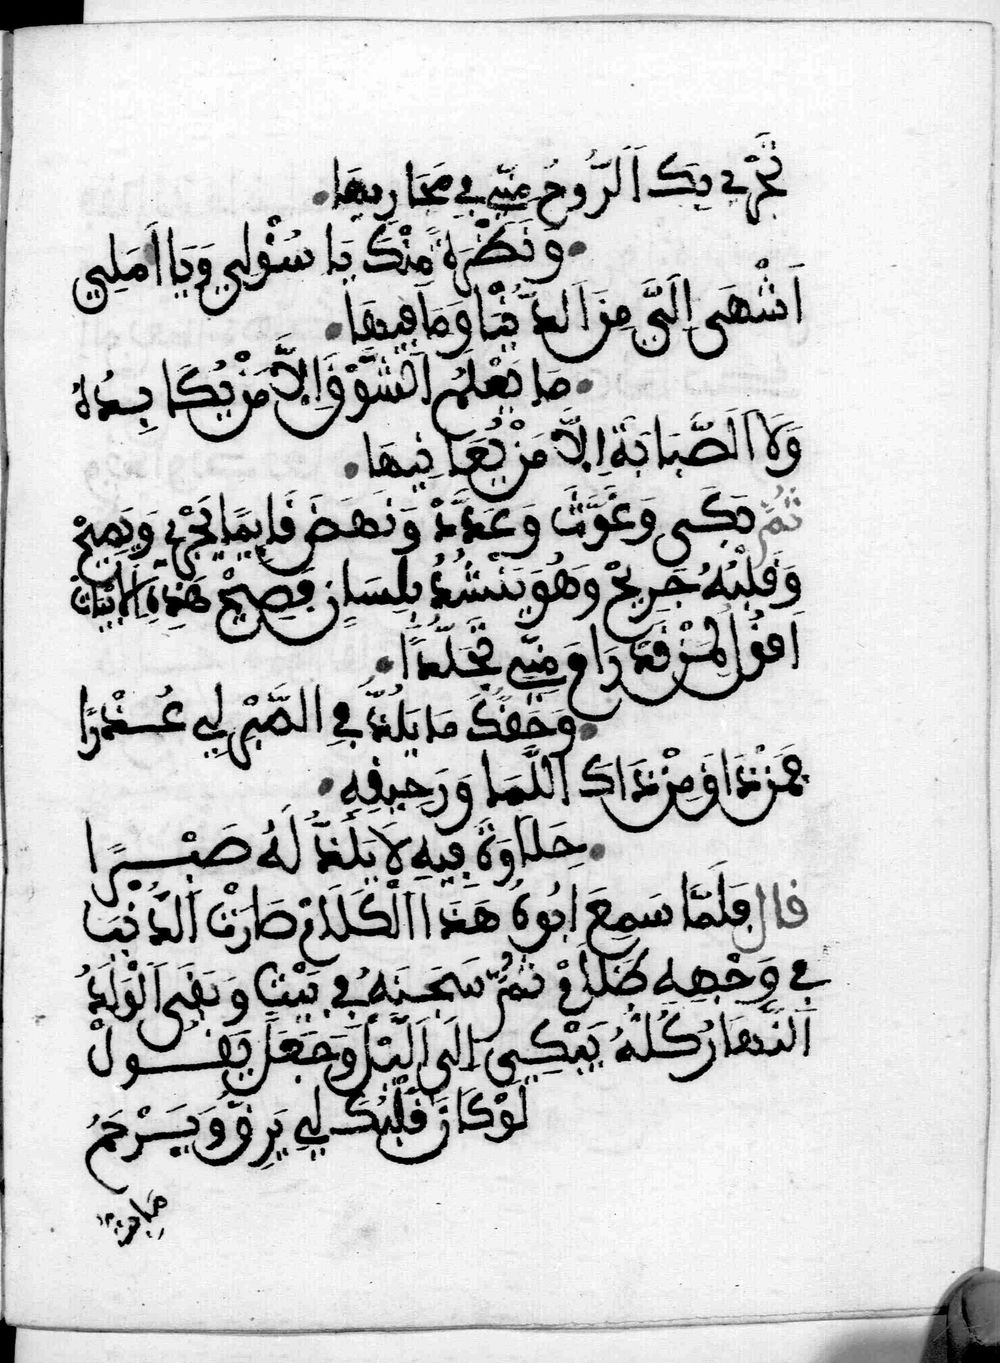 تَجْرِي بِكَ اَلرُّوحُ مِنِّي فِي مَجَارِيهَا
وَنَظْرَةً مِنْكَ يَا سُؤْلِي وَيَا أَمَلِي
اَشْهَى اِلَيَّ مِنَ الدُّنْيَا وَمَا فِيهَا
مَا يَعْلَمُ الشَّوْقَ اِلاَّ مَنْ يُكَابِدُهُ
وَلاَ الصَّبَابَةَ اِلاَّ مَنْ يُعَانِيهَا
ثُمَّ بَكَى وَغَوَّتَ وَعَدَّدَ وَنَهَضَ قَايِمًا يَجْرِي وَيَصِيحْ
وَقَلْبُهُ جَرِيحْ وَهُوَ يَنْشُدُ بِلِسَانٍ فَصِيحْ هَذِهِ الاَبْيَات
اَقُولُ لِمَنْ قَدْ رَاعَ مِنِّي تَجَلُّدًا
وَحَقِّكَ مَا يَلَذُّ فِي الصَّبْرِ لِي عُذْرًا
فَمَنْ ذَاقَ مِنْ ذَاكَ اللَّمَا وَرَحِيقِهِ
حَلاَوَةَ فِيهِ لاَ يَلَذُّ لَهُ صَبْرًا
قال فَلَمَّا سَمِعَ اَبُوهُ هَذَا الْكَلاَمْ صَارَتْ الدُّنْيَا
فِي وَجْهِهِ ظَلاَمْ ثُمَّ سَجَنَهُ فِي بَيْتٍ وَبَقَى الْوَلَدُ
اَلنَّهَارَ كُلَّهُ يَبْكِي اِلَى اَللَّيْلْ وَجَعَلَ يَقُولْ
لَوْ كَانَ قَلْبُكَ لِي يَرِقُّ وَيَرْحَمُ